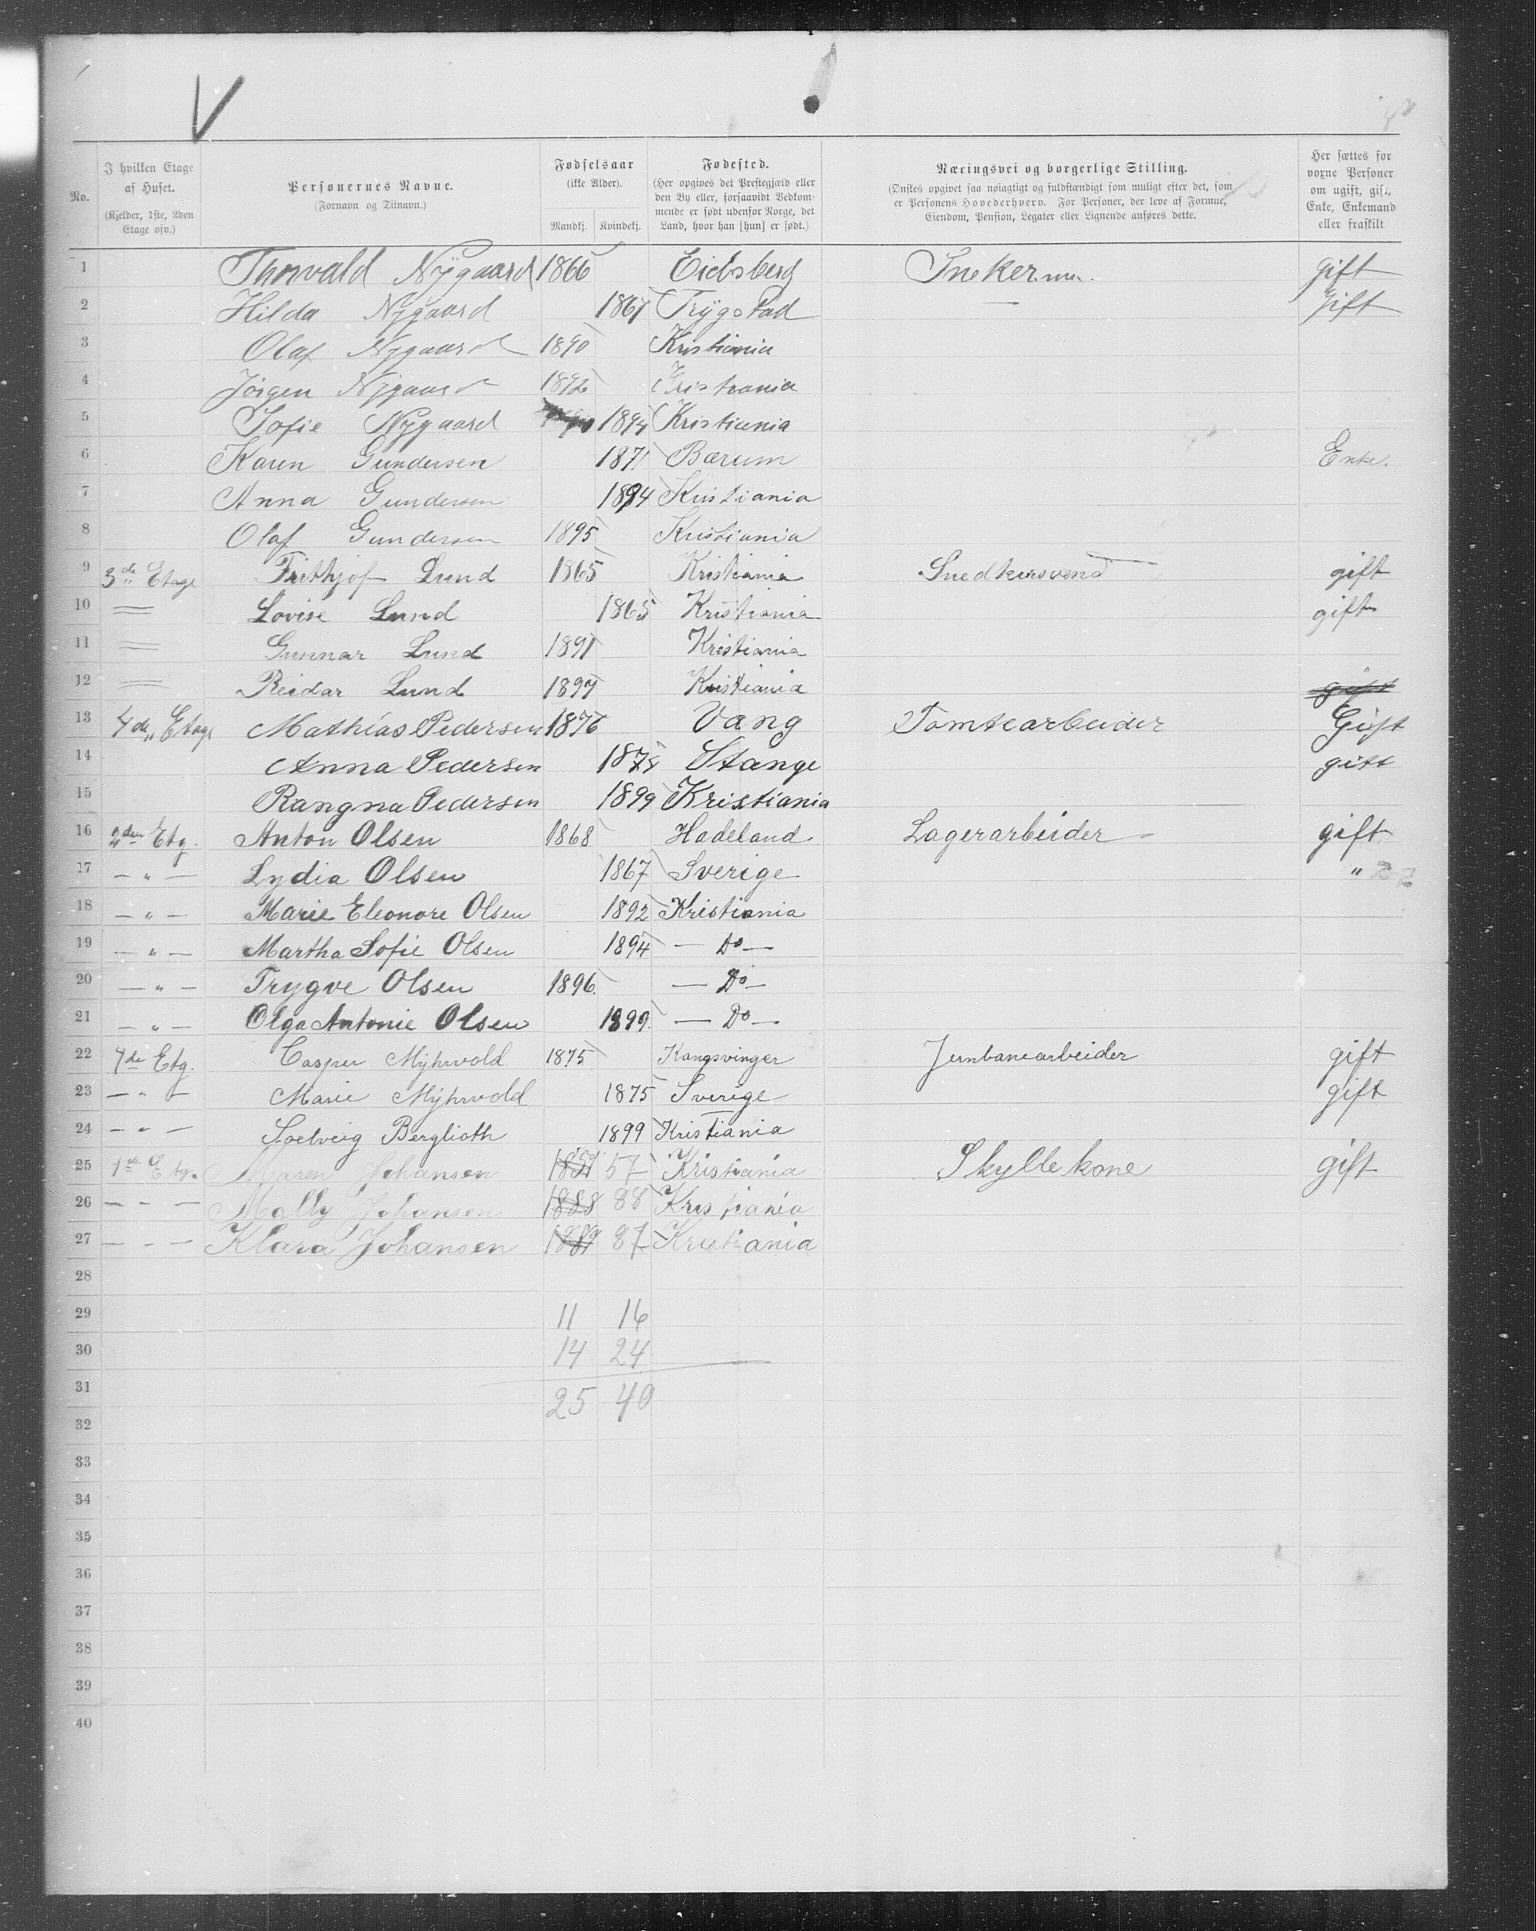 No.
I hvilken Etage af Huset.
(Kjelder, 1ste, 2den Etage osv.)
Personernes Navne.
(Fornavn og Tilnavn.)
Fødselsaar
(ikke Alder).
Mandkj. Kvindekj.
Fødested.
(Her opgives det Prestegjæld eller den By eller, forsaavidt Vedkommende er født udenfor Norge, det Land, hvor han [hun] er født.)
Næringsvei og borgerlige Stilling.
(Ønskes opgivet saa nøiagtigt og fuldstændigt som muligt efter det, som er Personens Hovederhverv. For Personer, der leve af Formue, Eiendom, Pension, Legater eller Lignende anføres dette.
Her sættes for voxne Personer om ugift, gift, Enke, Enkemand eller fraskilt
1 Thorvald Nygaard 1866 Eidsberg Snekerm. gift
2 Hilda Nygaard 1867 Trygstad — gift
3 Olaf Nygaard 1890 Kristiania
4 Jörgen Nygaard 1892 Kristiania
5 Sofie Nygaard 1894 Kristiania
6 Karen Gundersen 1871 Bærum Enke.
7 Anna Gundersen 1894 Kristiania
8 Olaf Gundersen 1895 Kristiania
9 3de Etage Frithjof Lund 1865 Kristiania Snedkersvend gift
10 〃 Lovise Lund 1865 Kristiania gift
11 〃 Gunnar Lund 1891 Kristiania
12 〃 Reidar Lund 1897 Kristiania gift
13 4de Etage Mathias Pedersen 1876 Vang Tomtearbeider Gift
14 Anna Pedersen 1875 Stange gift
15 Rangna Pedersen 1899 Kristiania
16 2den Etg. Anton Olsen 1868 Hadeland Lagerarbeider gift
17 — „ — Lydia Olsen 1867 Sverige „
18 — „ — Marie Eleonore Olsen 1892 Kristiania
19 — „ — Martha Sofie Olsen 1894 — Do —
20 — „ — Trygve Olsen 1896 — Do —
21 — „ — Olga Antonie Olsen 1899 — Do —
22 4de Etg. Casper Myhrvold 1875 Kongsvinger Jernbanearbeider gift
23 — „ — Marie Myhrvold 1875 Sverige gift
24 — „ — Soelveig Berglioth 1899 Kristiania
25 1ste Etg. Maren Johansen 1857 57 Kristiania Skyllekone gift
26 — „ — Mally Johansen 1888 88 Kristiania
27 — „ — Klara Johansen 1887 87 Kristiania
28
29 11 16
30 14 24
31 25 40
32
33
34
35
36
37
38
39
40